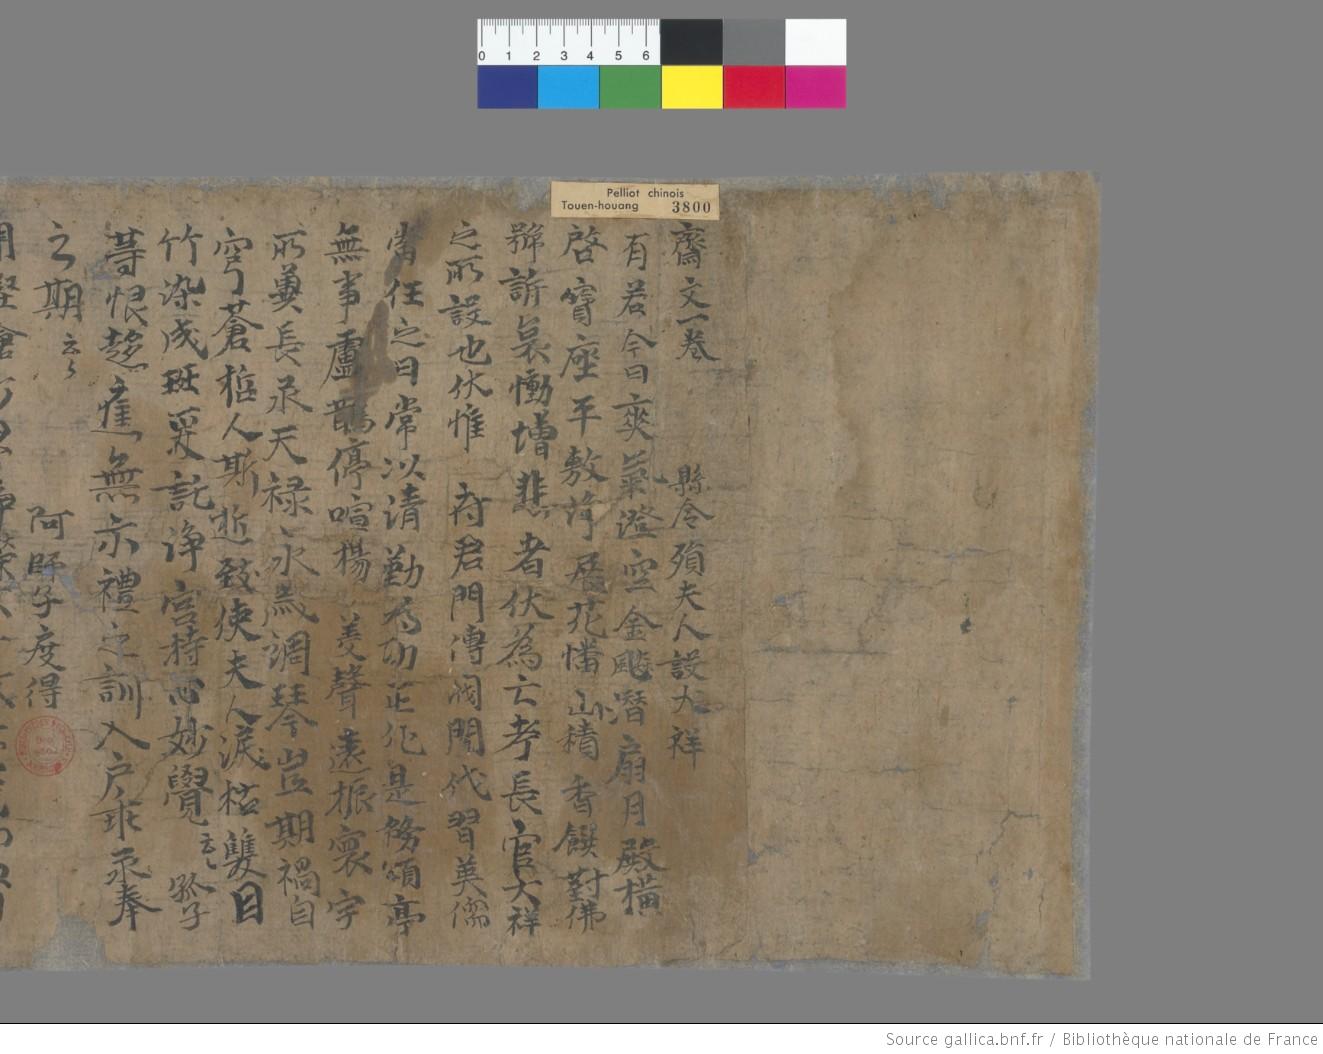 0 1 2 3 4 5 6
Pelliot chinois
Touen-houang 3800
齋文一卷 縣令殞夫人設大祥
有若今日爽氣澄空金飈潛扇月殿橫
啓寶座平敷莚展花幡山積香饌對佛
號訴哀慟增悲者伏為亡考長官大祥
之所設也伏惟 府君門傳閥閱代習英儒
當任之日常以清勤為功正化是務頌亭
無事盧鵲停喧楊 美聲遠振寰宇
所冀長承天祿永歲調琴豈期禍自
穹蒼哲人斯逝致使夫人淚枯雙目
竹染成斑爰託淨宮持心妙覺云々 孤子
等恨趍庭無示禮之訓入戶乖承奉
之期云々 阿師子度得
Source gallica.bnf.fr / Bibliothèque nationale de France